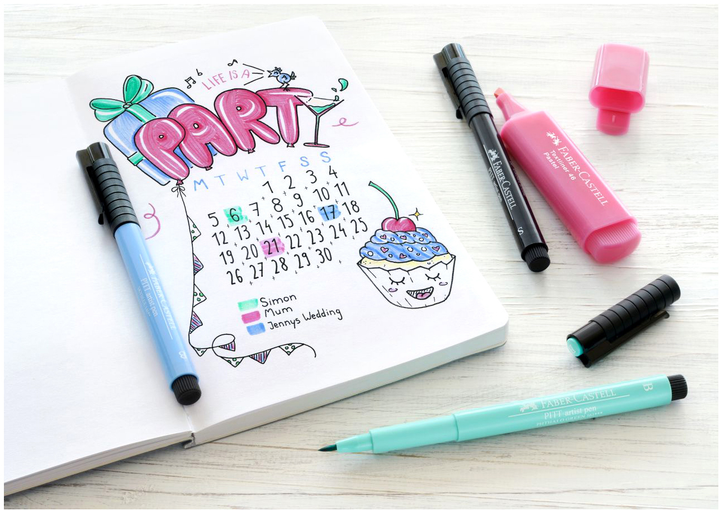 LIFE IS A
PARTY
M T W T F S S
1 2 3 4
5 6 7 8 9 10 11
12 13 14 15 16 17 18
19 20 21 22 23 24 25
26 27 28 29 30
Simon
Mum
Jennys Wedding
FABER-CASTELL
S
FABER-CASTELL
Textliner 46
Pastel
B
FABER-CASTELL
PITT artist pen